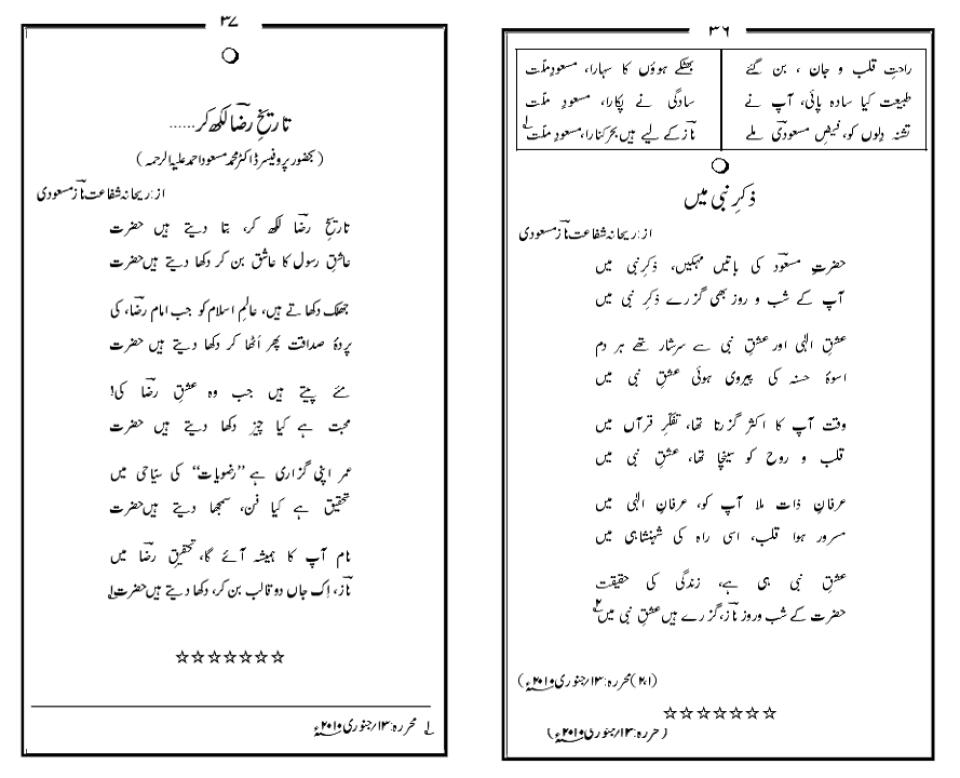 ۳۶
راحتِ قلب و جان ، بن گئے
بھٹکے ہوؤں کا سہارا، مسعودِ ملّت
طبیعت کیا سادہ پائی، آپ نے
سادگی نے پکارا، مسعودِ ملّت
تشنہ دِلوں کو، فیضِ مسعودی ملے
نازؔ کے لیے ہیں بحرِ کنارا، مسعودِ ملّت ۱؎
ذکرِ نبی میں
از: ریحانہ شفاعت نازؔ مسعودی
حضرتِ مسعودؔ کی باتیں مہکیں، ذکرِ نبی میں
آپ کے شب و روز بھی گزرے ذکرِ نبی میں
عشقِ الٰہی اور عشقِ نبی سے سرشار تھے ہر دم
اسوۂ حسنہ کی پیروی ہوئی عشقِ نبی میں
وقت آپ کا اکثر گزرتا تھا، تفکّرِ قرآں میں
قلب و روح کو سینچا تھا، عشقِ نبی میں
عرفانِ ذات ملا آپ کو، عرفانِ الٰہی میں
مسرور ہوا قلب، اسی راہ کی شہنشاہی میں
عشقِ نبی ہی ہے، زندگی کی حقیقت
حضرت کے شب وروز نازؔ، گزرے ہیں عشقِ نبی میں ۲؎
(۲،۱) محررہ: ۱۳/جنوری ۲۰۱۰ء)
☆☆☆☆☆☆☆
(حررہ: ۱۳/جنوری ۲۰۱۰ء)
۳۷
تاریخِ رضاؔ لکھ کر......
(بحضور پروفیسر ڈاکٹر محمد مسعود احمد علیہ الرحمہ)
از: ریحانہ شفاعت نازؔ مسعودی
تاریخِ رضاؔ لکھ کر، بتا دیتے ہیں حضرت
عاشقِ رسول کا عاشق بن کر دکھا دیتے ہیں حضرت
جھلک دکھاتے ہیں، عالمِ اسلام کو جب امام رضاؔ، کی
پردۂ صداقت پھر اُٹھا کر دکھا دیتے ہیں حضرت
مئے پیتے ہیں جب وہ عشقِ رضاؔ کی!
محبت ہے کیا چیز دکھا دیتے ہیں حضرت
عمر اپنی گزاری ہے ”رضویات“ کی سیّاحی میں
تحقیق ہے کیا فن، سمجھا دیتے ہیں حضرت
نام آپ کا ہمیشہ آئے گا، تحقیقِ رضاؔ میں
نازؔ، اِک جاں دو قالب بن کر، دکھا دیتے ہیں حضرت ۱؎
☆☆☆☆☆☆☆
۱؎ محررہ: ۱۳/جنوری ۲۰۱۰ء